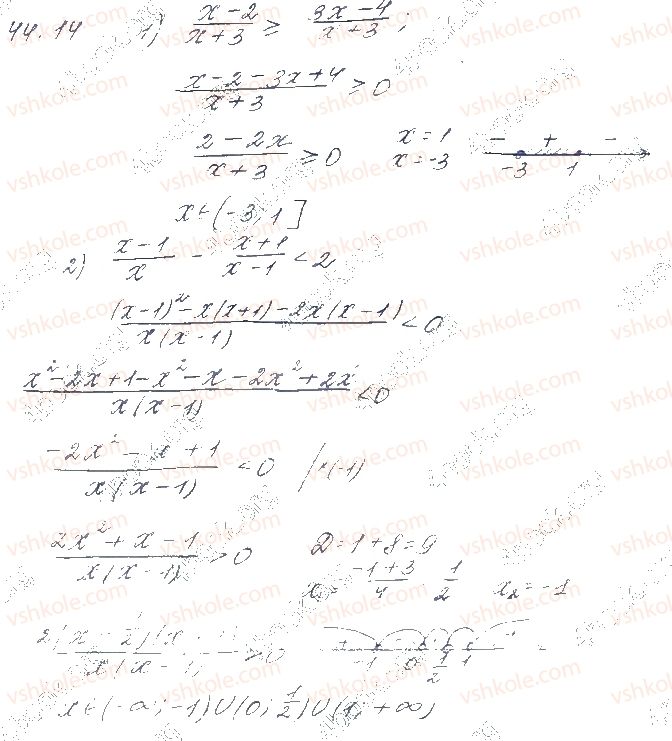 44.14 1) (x-2)/(x+3) ≥ (3x-4)/(x+3);
(x-2-3x+4)/(x+3) ≥ 0
(2-2x)/(x+3) ≥ 0 x=1 x=-3 - + - -3 1
x∈(-3;1]
2) (x-1)/x - (x+1)/(x-1) < 2
((x-1)²-x(x+1)-2x(x-1))/(x(x-1)) < 0
(x²-2x+1-x²-x-2x²+2x)/(x(x-1)) < 0
(-2x²-x+1)/(x(x-1)) < 0 /×(-1)
(2x²+x-1)/(x(x-1)) > 0 D=1+8=9
x₁=(-1+3)/4 1/2 x₂=-1
≥0 + - -1 0 1/2 1
x∈(-∞;-1)U(0;1/2)U(1;+∞)
vshkole.com